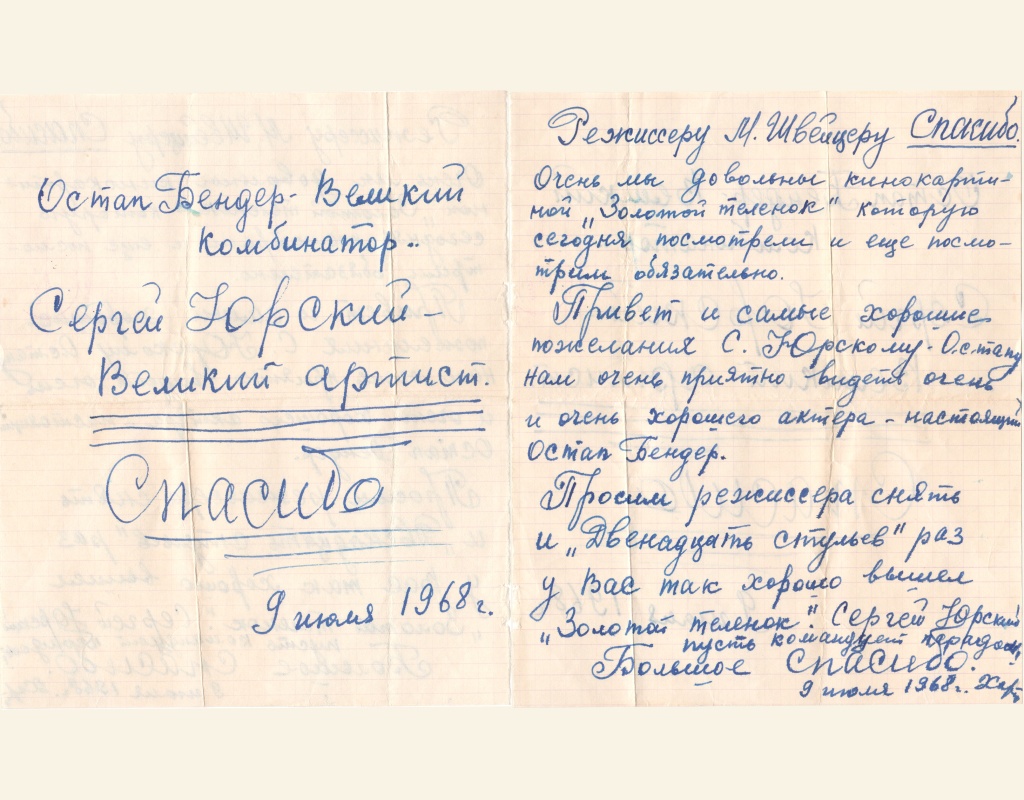 Остап Бендер - Великий
комбинатор..
Сергей Юрский -
Великий артист.
Спасибо
9 июля 1968 г.
Режиссеру М. Швейцеру Спасибо.
Очень мы довольны кинокарти-
ной „Золотой теленок" которую
сегодня посмотрели и еще посмо-
трим обязательно.
Привет и самые хорошие
пожелания С. Юрскому - Остапу
нам очень приятно видеть очень
и очень хорошего актера - настоящий
Остап Бендер.
Просим режиссера снять
и „Двенадцать стульев" раз
у Вас так хорошо вышел
„Золотой теленок". Сергей Юрский
пусть командует парадом,
Большое Спасибо.
9 июля 1968 г.